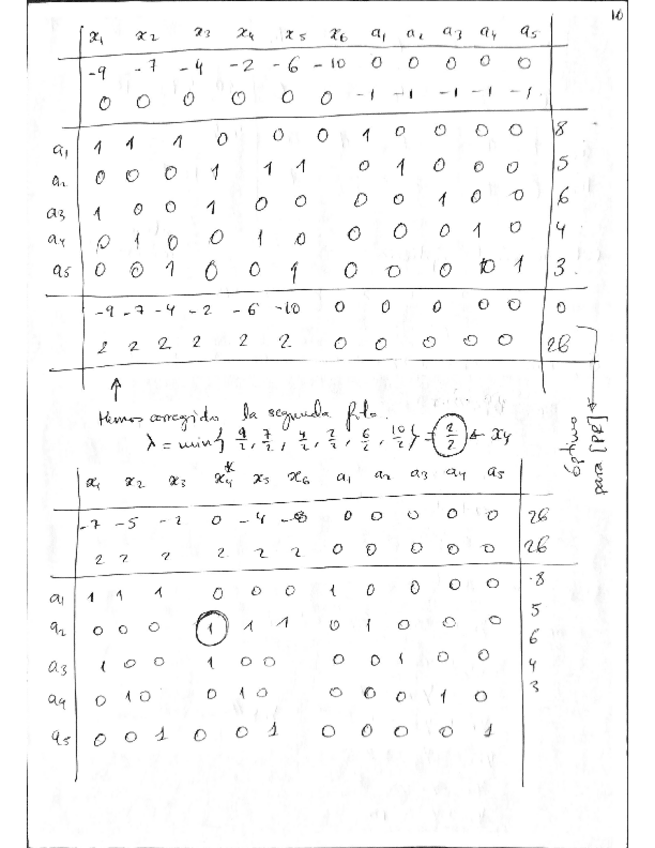 10
x1 x2 x3 x4 x5 x6 a1 a2 a3 a4 a5
-9 -7 -4 -2 -6 -10 0 0 0 0 0
0 0 0 0 0 0 -1 -1 -1 -1 -1
a1 1 1 1 0 0 0 1 0 0 0 0 8
a2 0 0 0 1 1 1 0 1 0 0 0 5
a3 1 0 0 1 0 0 0 0 1 0 0 6
a4 0 1 0 0 1 0 0 0 0 1 0 4
a5 0 0 1 0 0 1 0 0 0 0 1 3
-9 -7 -4 -2 -6 -10 0 0 0 0 0 0
2 2 2 2 2 2 0 0 0 0 0 26
↑
Hemos corregido la segunda fila.
λ = min{ 9/2, 7/2, 4/2, 2/2, 6/2, 10/2 } = 2/2 ← x4
óptimo
para [PP]
x1 x2 x3 x4* x5 x6 a1 a2 a3 a4 a5
-7 -5 -2 0 -4 -8 0 0 0 0 0 26
2 2 2 2 2 2 0 0 0 0 0 26
a1 1 1 1 0 0 0 1 0 0 0 0 8
a2 0 0 0 1 1 1 0 1 0 0 0 5
a3 1 0 0 1 0 0 0 0 1 0 0 6
a4 0 1 0 0 1 0 0 0 0 1 0 4
a5 0 0 1 0 0 1 0 0 0 0 1 3